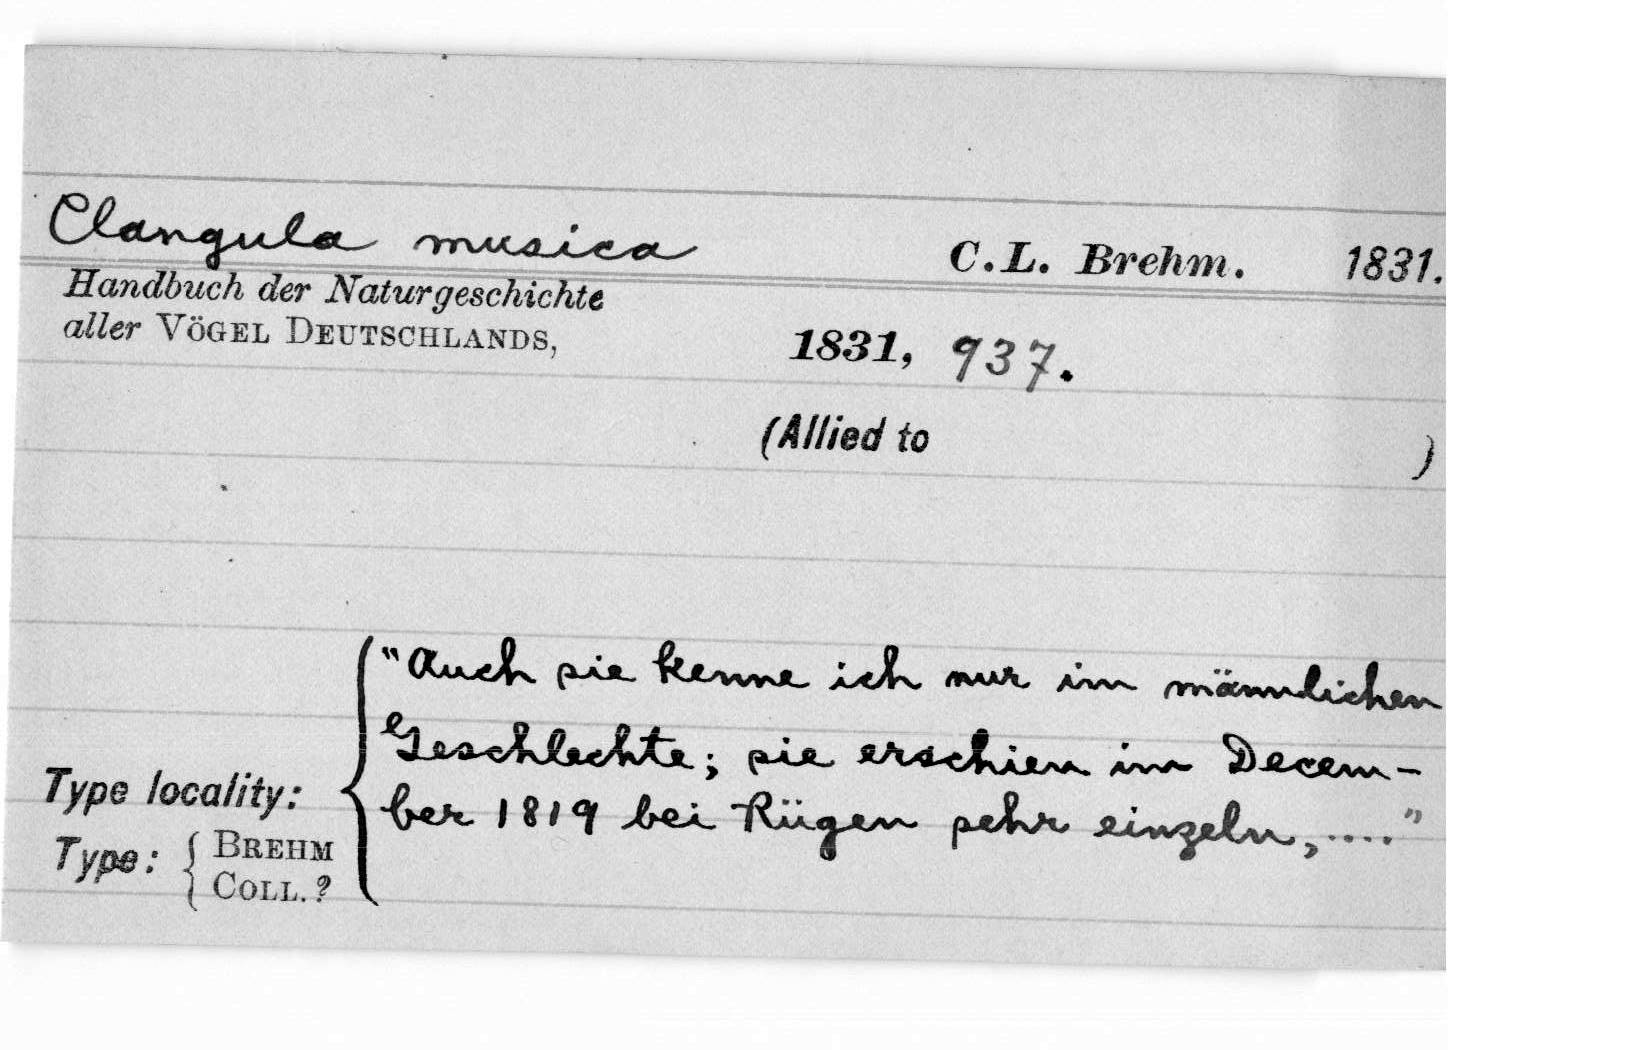 Clangula musica C.L. Brehm. 1831.
Handbuch der Naturgeschichte
aller VÖGEL DEUTSCHLANDS, 1831, 937.
(Allied to )
"Auch sie kenne ich nur im männlichen
Geschlechte; sie erschien im Decem-
Type locality: ber 1819 bei Rügen sehr einzeln,...."
Type: { BREHM
COLL. ?